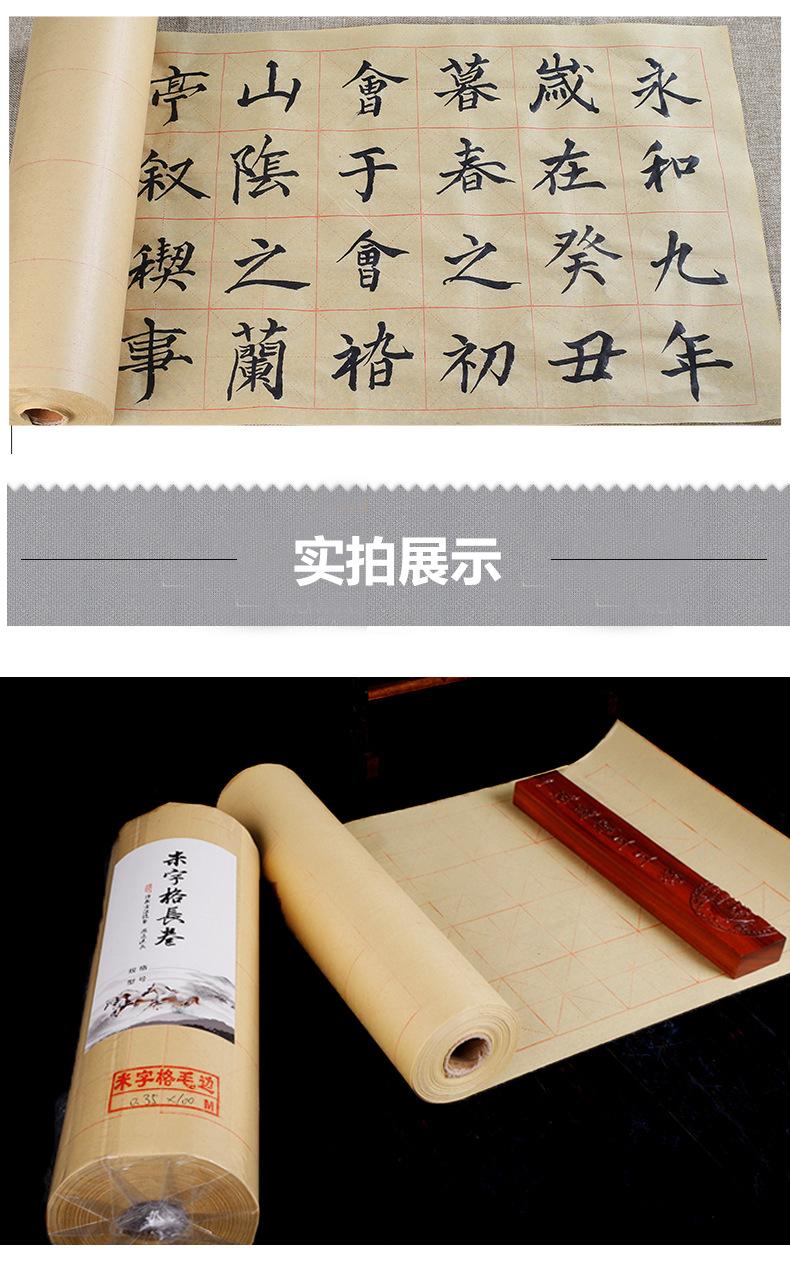 永和九年
嵗在癸丑
暮春之初
會于會
山陰之蘭
亭叙稧事
实拍展示
米字格長卷
规格
型号
米字格毛边
0.35 x100 M